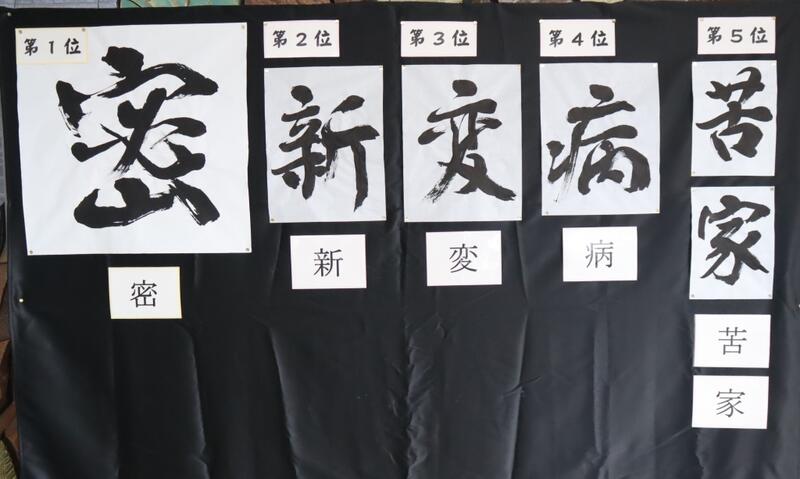 第1位
密
密
第2位
新
新
第3位
変
変
第4位
病
病
第5位
苦
家
苦
家